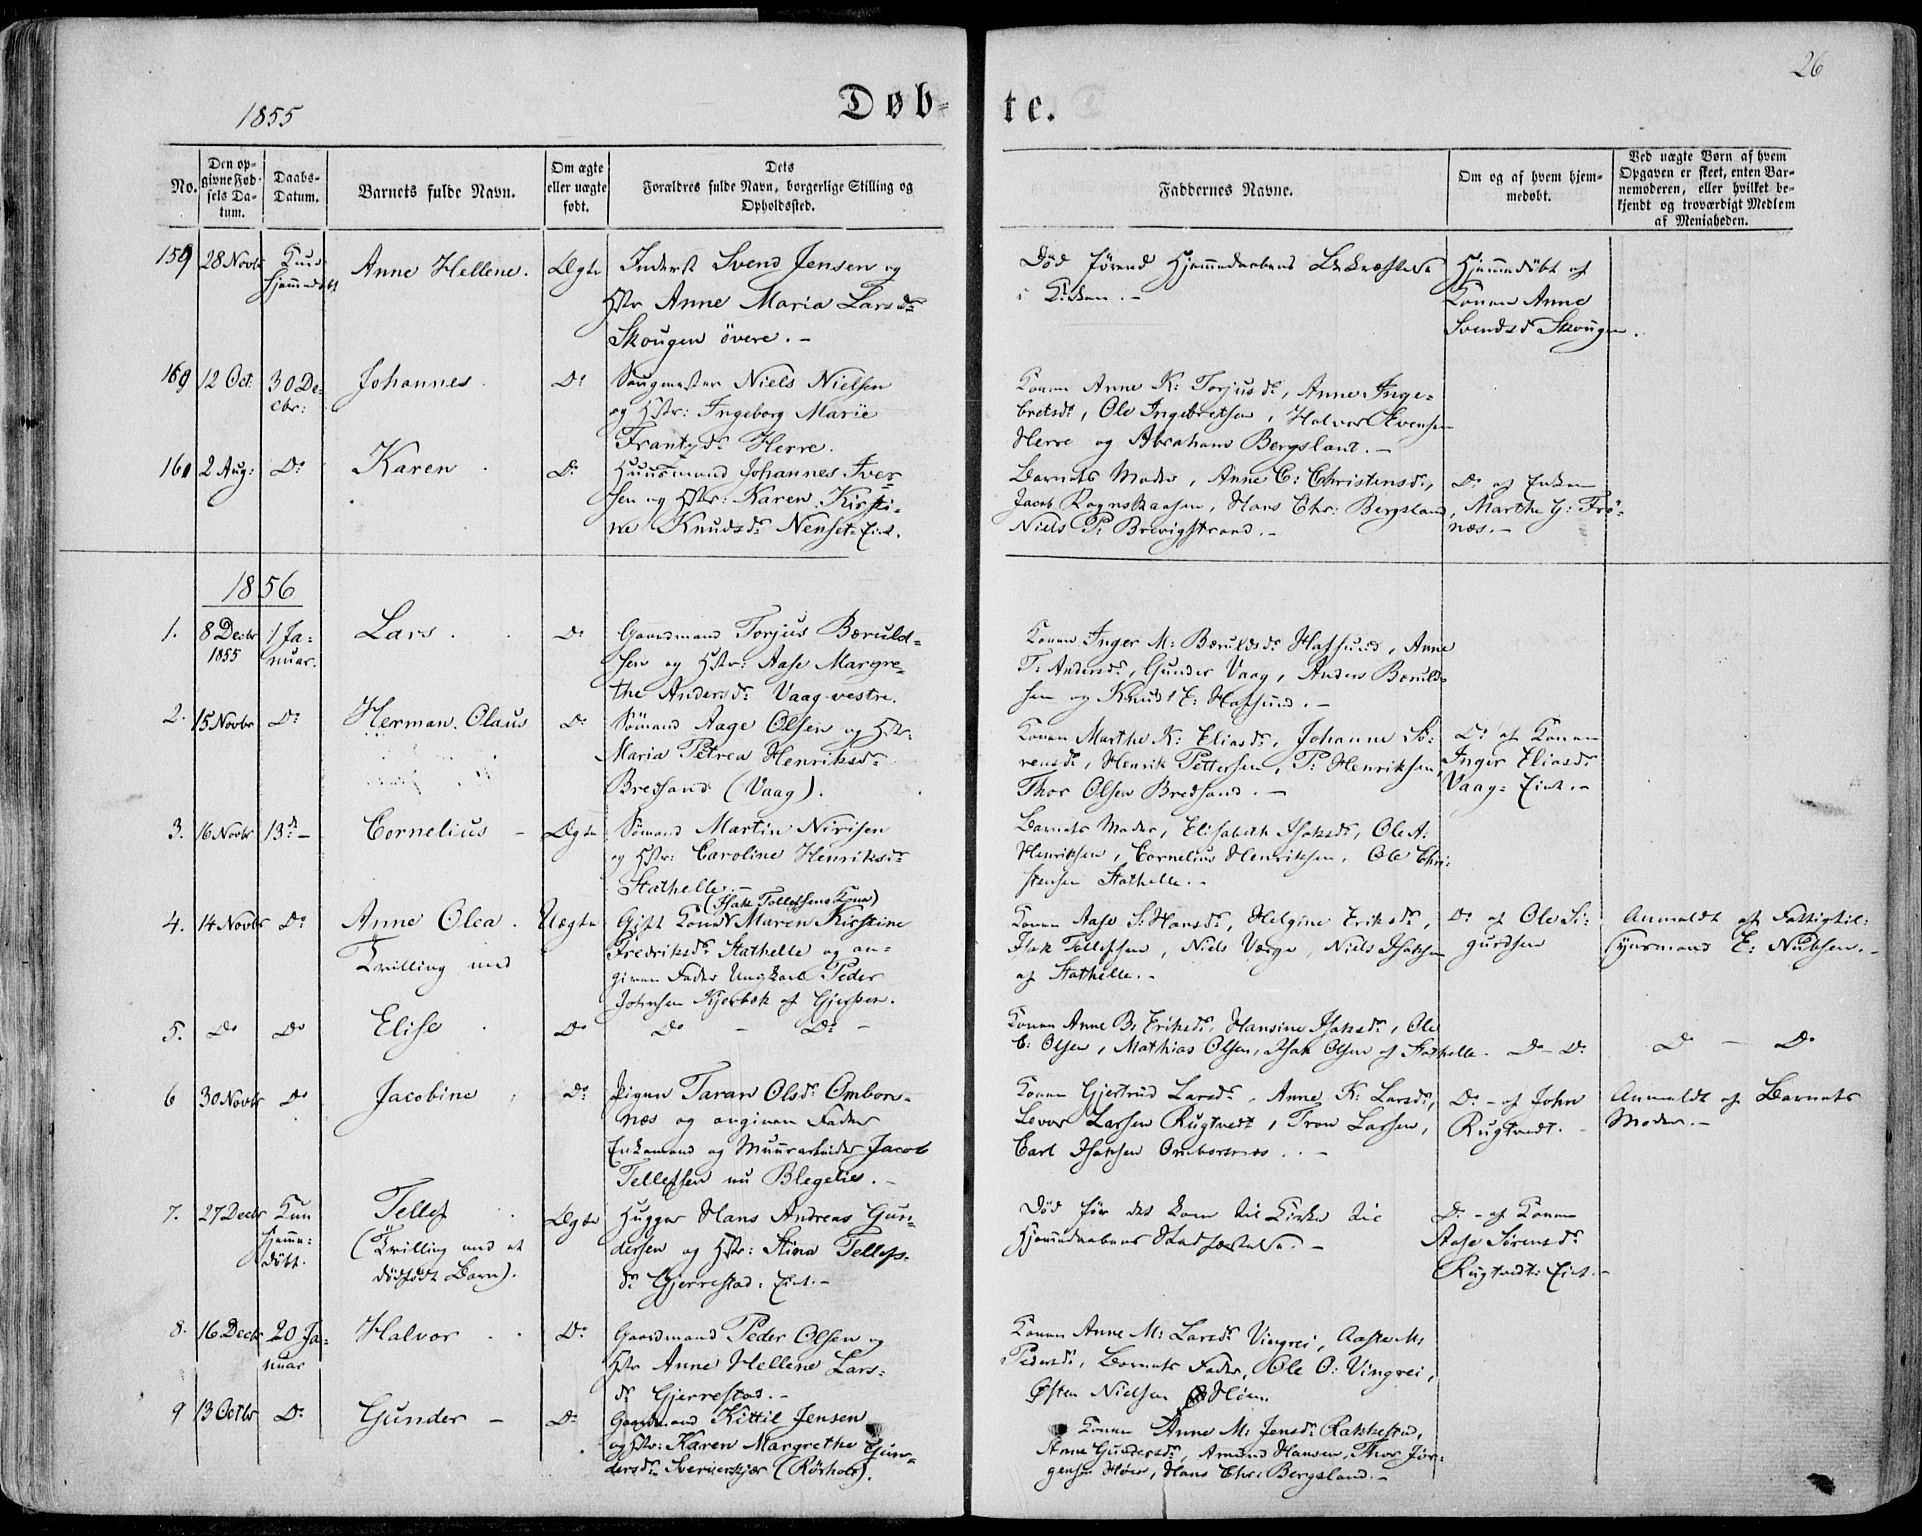 26
1855
Døb-
te.
No.
Den op-
givne Fød-
sels Da-
tum.
Daabs-
Datum.
Barnets fulde Navn.
Om ægte
eller uægte
født.
Dets
Forældres fulde Navn, borgerlige Stilling og
Opholdssted.
Faddernes Navne.
Om og af hvem hjem-
medøbt.
Ved uægte Børn af hvem
Opgaven er skeet, enten Bar-
nemoderen, eller hvilket be-
kjendt og troværdigt Medlem
af Menigheden.
159
28 Novbr
Kun
hjemmedøbt
Anne Hellene.
Ægte
Inderst Svend Jensen og
Hstr Anne Maria Larsdr
Skougen övere. -
Död förend Hjemmedaabens Bekræftelse
i Kirken. -
Hjemmedöbt af
Konen Anne
Svendsdr Skougen.
160
12 Oct:
30 De-
cbr:
Johannes
Do
Saugmester Niels Nielsen
og Hstr: Ingeborg Marie
Frantzdr Herre.
Konen Anne K: Torjusdr, Anne Inge-
bretsdr, Ole Ingebretsen, Halvor Evensen
Herre og Abraham Bergsland. -
161
2 Aug:
Do
Karen
Do
Huusmand Johannes Iver-
sen og Hstr: Karen Kirsti-
ne Knudsdr Nenset-Eiet.
Barnets Moder, Anne C: Christensdr,
Jacob Rognskaasen, Hans Chr: Bergsland,
Niels P: Brevigstrand. -
Do af Enken
Marthe G: Frö-
næs. -
1856
1.
8 Decbr
1855
1 Ja-
nuar.
Lars
Do
Gaardmand Torjus Bæruld-
sen og Hstr: Aase Margre-
the Andersdr Vaag vestre.
Konen Inger M: Bæruldsdr Hafsund, Anne
T: Andersdr, Gunder Vaag, Anders Bæruld-
sen og Knud E: Hafsund. -
2.
15 Novbr
Do
Herman Olaus
Do
Sömand Aage Olsen og Hstr:
Maria Petrea Henriksdr
Bredsand (Vaag).
Konen Marthe K: Eliasdr, Johanne Sö-
rensdr, Henrik Pettersen, P: Henriksen,
Thor Olsen Bredsand. -
Do af Konen
Inger Eliasdr
Vaag-Eiet. -
3.
16 Novbr
13de -
Cornelius -
Ægte
Sömand Martin Nirisen
og Hstr: Caroline Henriksdr
Stathelle. -
Barnets Moder, Elisabeth Isaksdr, Ole A:
Henriksen, Cornelius Henriksen, Ole Chri-
stensen Stathelle. -
4.
14 Novbr
Do
Anne Olea.
Tvilling med
Uægte
(Isak Tollefsens Kone)
Gift Kone Maren Kirstine
Fredriksdr Stathelle og an-
given Fader Ungkarl Peder
Johnsen Kjerbæk af Gjerpen.
Konen Aase S: Hansdr, Helgine Eriksdr,
Isak Tollefsen, Niels Værge, Niels Isaksen
af Stathelle. -
Do af Ole Si-
gurdsen
Anmeldt af Fattigtil-
synsmand E: Nubsen. -
5.
Do
Do
Elise
Do
Do - Do -
Konen Anne B: Eriksdr, Hansine Isaksdr, Ole
C: Olsen, Mathias Olsen, Isak Olsen af Stathelle.
Do - Do
Do - Do
6
30 Novbr
Do
Jacobine
Do
Pigen Taran Olsdr Ombors-
næs og angiven Fader
Enkemand og Muurarbeider Jacob
Tellefsen nu Blegelie. -
Konen Gjertrud Larsdr, Anne K: Larsdr,
Levor Larsen Rugtvedt, Tron Larsen,
Carl Isaksen Omborsnæs. -
Do - af John
Rugtvedt. -
Anmeldt af Barnets
Moder. -
7.
27 Decbr
Kun
hjemme-
döbt.
Tellef
(Tvilling med et
dödfödt Barn).
Ægte
Hugger Hans Andreas Gun-
dersen og Hstr: Stina Tellefs-
dr Gjerrestad-Eiet. -
Död för det kom til Kirke til
Hjemmedaabens Stadfæstelse. -
Do - af Konen
Aase Sörensdr
Rugtvedt-Eiet. -
8.
16 Decbr
20 Ja-
nuar
Halvor
Do
Gaardmand Peder Olsen og
Hstr Anne Hellene Lars-
dr Gjerrestad. -
Konen Anne M: Larsdr Vingrei, Aaste M:
Pedersdr, Barnets Fader, Ole O: Vingrei,
Østen Nielsen Höen.
9
13 Octbr
Do
Gunder -
Do
Gaardmand Kittil Jensen
og Hstr: Karen Margrethe Gun-
dersdr Sverierskjær (Rörholt).
Konen Anne M: Jensdr Rakkestad,
Anne Gundersdr, Amund Hansen, Thor Jör-
gensen Höen, Hans Chr: Bergsland. -